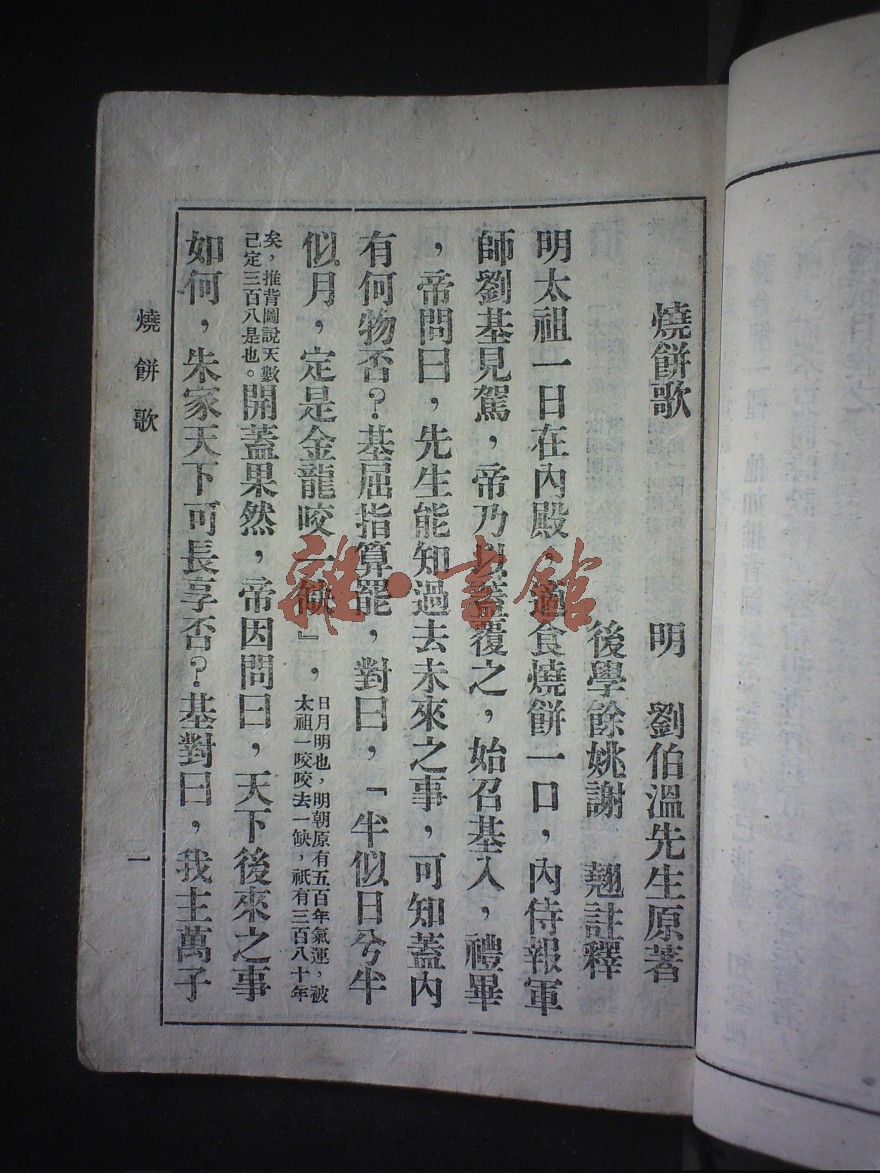 燒餅歌
明　劉伯溫先生原著
後學餘姚謝　翹註釋
明太祖一日在內殿，適食燒餅一口，內侍報軍
師劉基見駕，帝乃以蓋覆之，始召基入，禮畢
，帝問曰，先生能知過去未來之事，可知蓋內
有何物否？基屈指算罷，對曰，「半似日兮半
似月，定是金龍咬一缺」，
日月明也，明朝原有五百年氣運，被
太祖一咬咬去一缺，祇有三百八十年
矣，推背圖說天數
己定三百八是也。
開蓋果然，帝因問曰，天下後來之事
如何，朱家天下可長享否？基對曰，我主萬子
燒餅歌
一
雜·書館